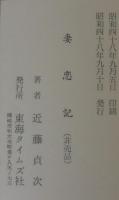 昭和四十八年九月五日 印刷
昭和四十八年九月十日 発行
妻恋記 (非売品)
著者 近藤貞次
発行所 東海タイムズ社